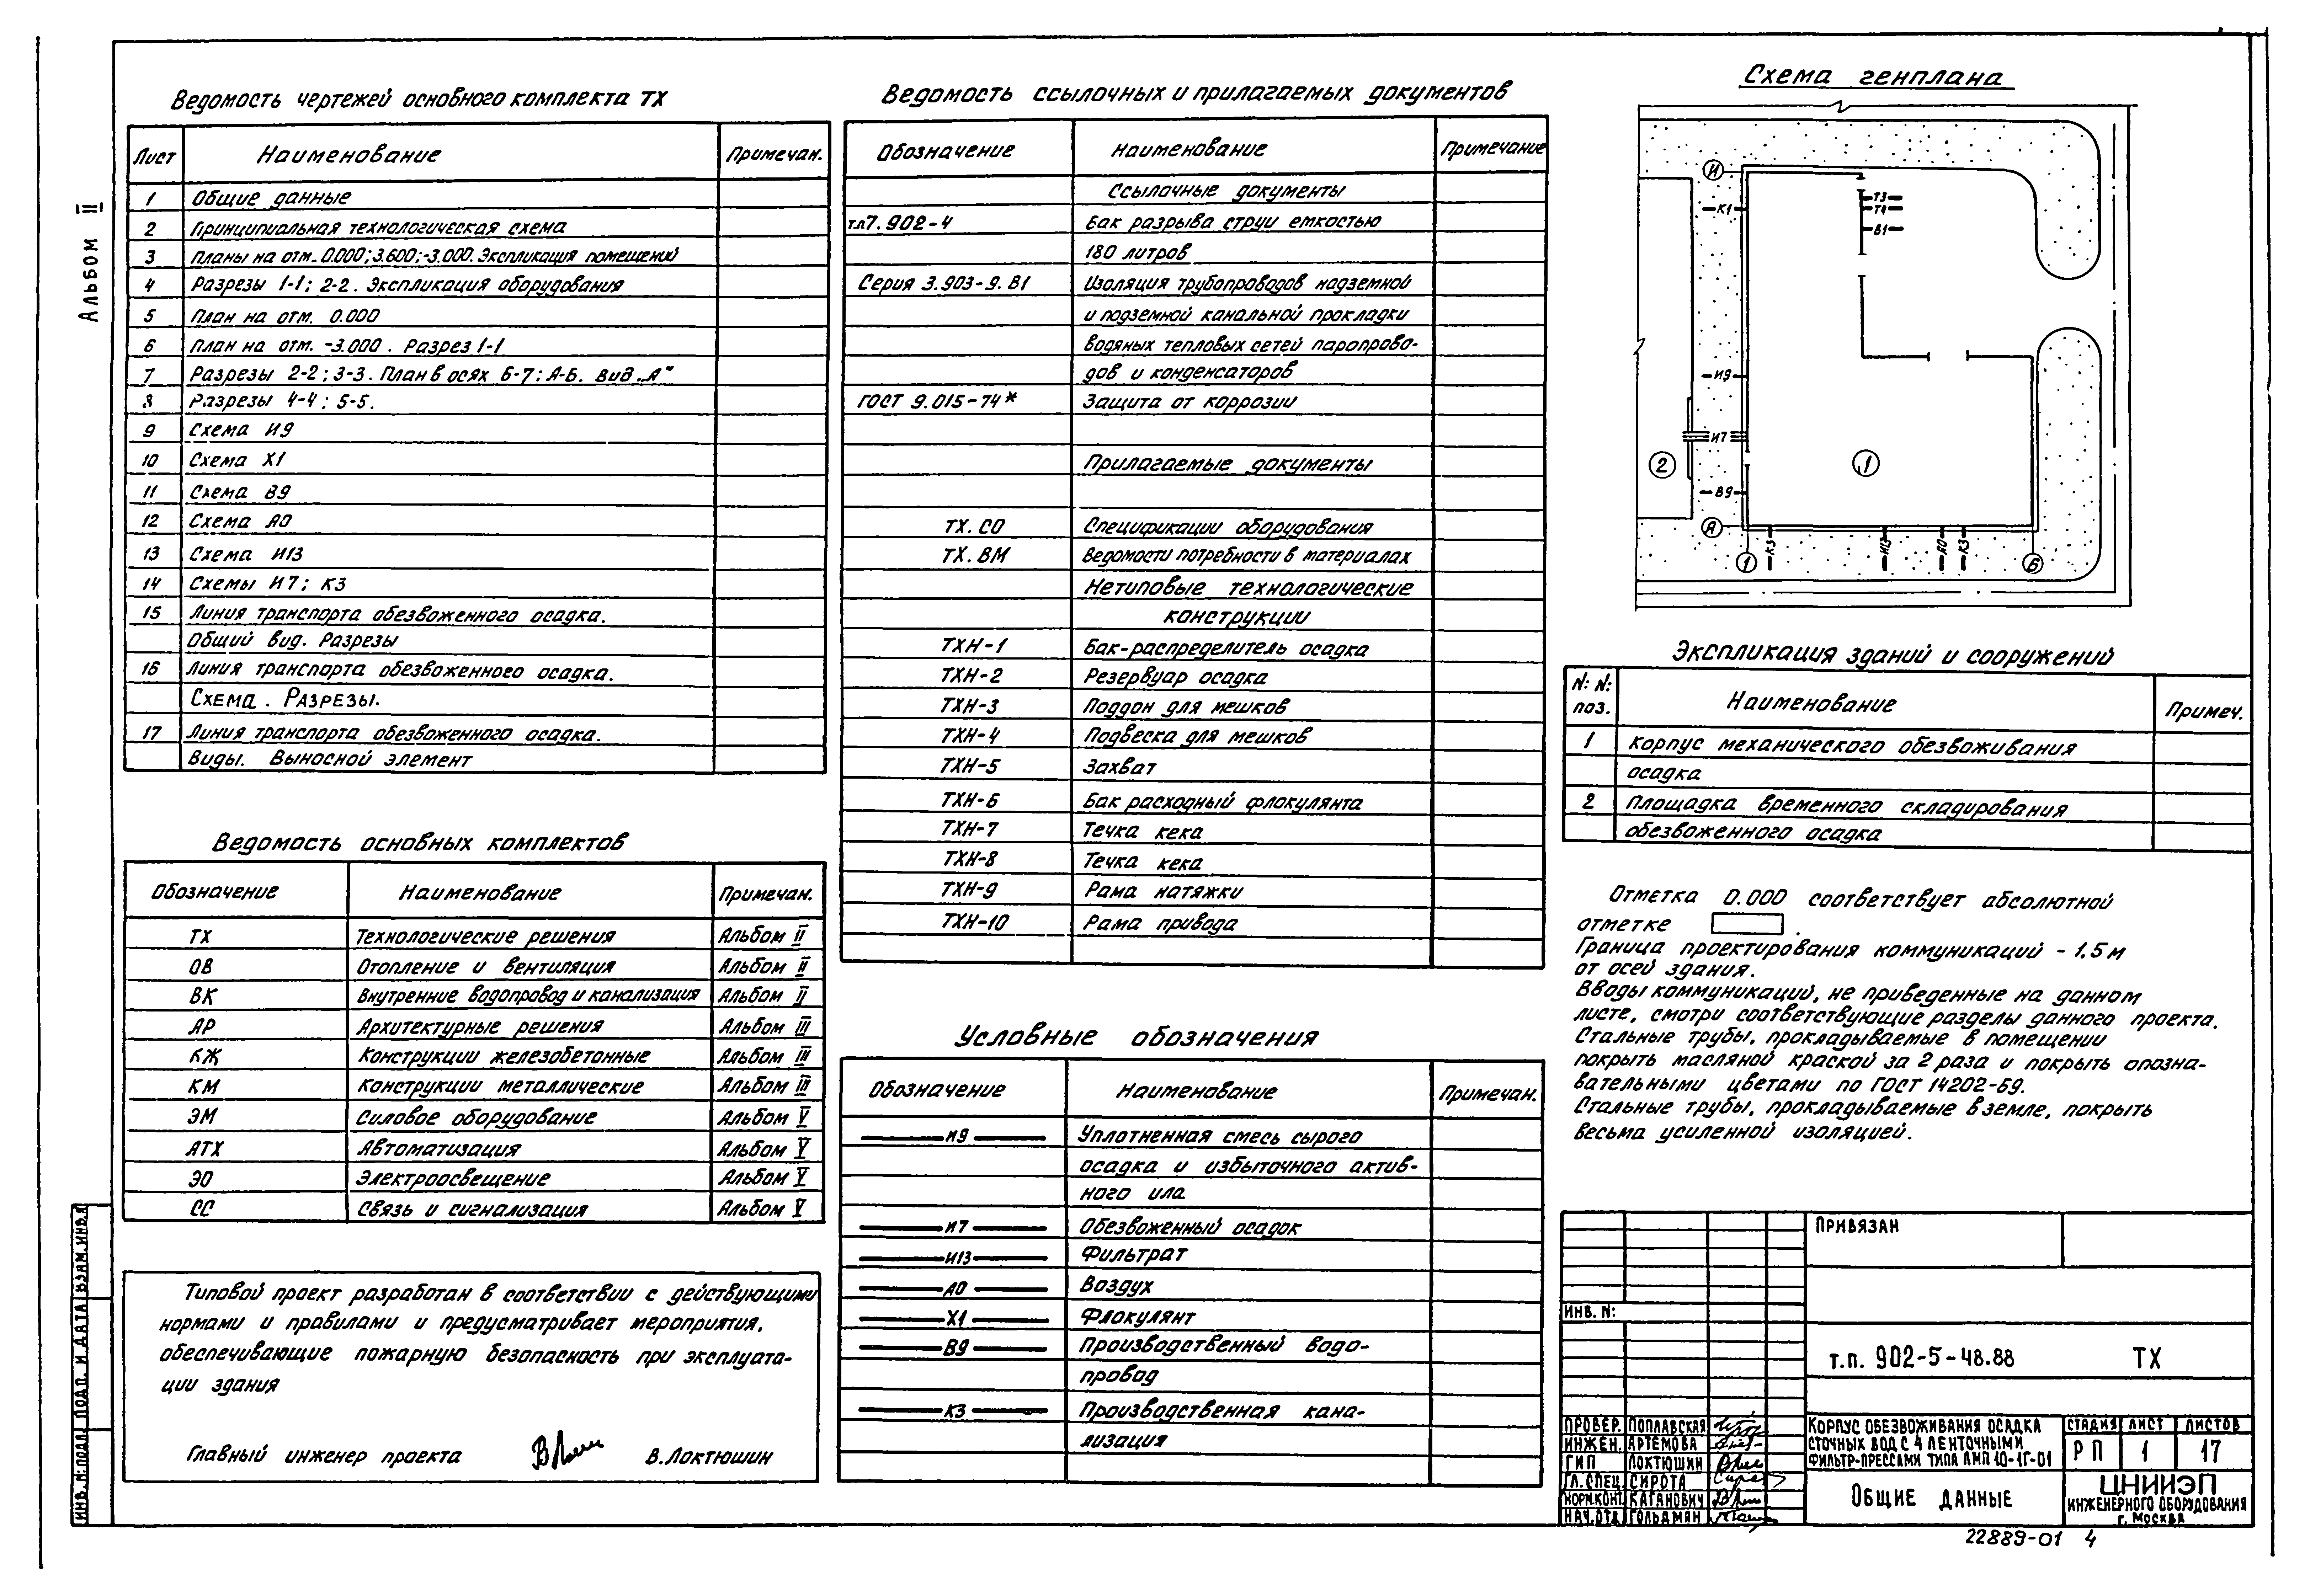 Альбом II
Ведомость чертежей основного комплекта ТХ
Лист Наименование Примечан.
1 Общие данные
2 Принципиальная технологическая схема
3 Планы на отм. 0.000; 3.600; -3.000. Экспликация помещений
4 Разрезы 1-1; 2-2. Экспликация оборудования
5 План на отм. 0.000
6 План на отм. -3.000. Разрез 1-1
7 Разрезы 2-2; 3-3. План в осях Б-7; А-Б. Вид „А"
8 Разрезы 4-4; 5-5.
9 Схема И9
10 Схема Х1
11 Схема В9
12 Схема А0
13 Схема И13
14 Схемы И7; К3
15 Линия транспорта обезвоженного осадка.
Общий вид. Разрезы
16 Линия транспорта обезвоженного осадка.
Схема. Разрезы.
17 Линия транспорта обезвоженного осадка.
Виды. Выносной элемент
Ведомость основных комплектов
Обозначение Наименование Примечан.
ТХ Технологические решения Альбом II
ОВ Отопление и вентиляция Альбом II
ВК Внутренние водопровод и канализация Альбом II
АР Архитектурные решения Альбом III
КЖ Конструкции железобетонные Альбом III
КМ Конструкции металлические Альбом III
ЭМ Силовое оборудование Альбом V
АТХ Автоматизация Альбом V
ЭО Электроосвещение Альбом V
СС Связь и сигнализация Альбом V
Типовой проект разработан в соответствии с действующими
нормами и правилами и предусматривает мероприятия,
обеспечивающие пожарную безопасность при эксплуата-
ции здания
Главный инженер проекта В.Локтюшин
Ведомость ссылочных и прилагаемых документов
Обозначение Наименование Примечание
Ссылочные документы
т.п 7.902-4 Бак разрыва струи емкостью
180 литров
Серия 3.903-9. В1 Изоляция трубопроводов надземной
и подземной канальной прокладки
водяных тепловых сетей паропрово-
дов и конденсаторов
ГОСТ 9.015-74* Защита от коррозии
Прилагаемые документы
ТХ. СО Спецификации оборудования
ТХ. ВМ Ведомости потребности в материалах
Нетиповые технологические
конструкции
ТХН-1 Бак-распределитель осадка
ТХН-2 Резервуар осадка
ТХН-3 Поддон для мешков
ТХН-4 Подвеска для мешков
ТХН-5 Захват
ТХН-6 Бак расходный флокулянта
ТХН-7 Течка кека
ТХН-8 Течка кека
ТХН-9 Рама натяжки
ТХН-10 Рама привода
Условные обозначения
Обозначение Наименование Примечан.
И9 Уплотненная смесь сырого
осадка и избыточного актив-
ного ила
И7 Обезвоженный осадок
И13 Фильтрат
А0 Воздух
Х1 Флокулянт
В9 Производственный водо-
провод
К3 Производственная кана-
лизация
Схема генплана
И
К1
Т3
Т4
В1
И9
И7
2
1
В9
А
К3
И13
А0
К3
1
Б
Экспликация зданий и сооружений
N: N:
поз. Наименование Примеч.
1 Корпус механического обезвоживания
осадка
2 Площадка временного складирования
обезвоженного осадка
Отметка 0.000 соответствует абсолютной
отметке .
Граница проектирования коммуникаций - 1.5 м
от осей здания.
Вводы коммуникаций, не приведенные на данном
листе, смотри соответствующие разделы данного проекта.
Стальные трубы, прокладываемые в помещении
покрыть масляной краской за 2 раза и покрыть опозна-
вательными цветами по ГОСТ 14202-69.
Стальные трубы, прокладываемые в земле, покрыть
весьма усиленной изоляцией.
Привязан
Инв. N:
т.п. 902-5-48.88 ТХ
Провер. Поплавская
Инжен. Артемова
ГИП Локтюшин
Гл. спец. Сирота
Норм.конт. Каганович
Нач.отд. Гольдман
Корпус обезвоживания осадка
сточных вод с 4 ленточными
фильтр-прессами типа ЛМП 10-1Г-01
Стадия Лист Листов
РП 1 17
Общие данные
ЦНИИЭП
инженерного оборудования
г. Москва
Инв. N: подл. Подп. и дата Взам. инв. N
22889-01 4